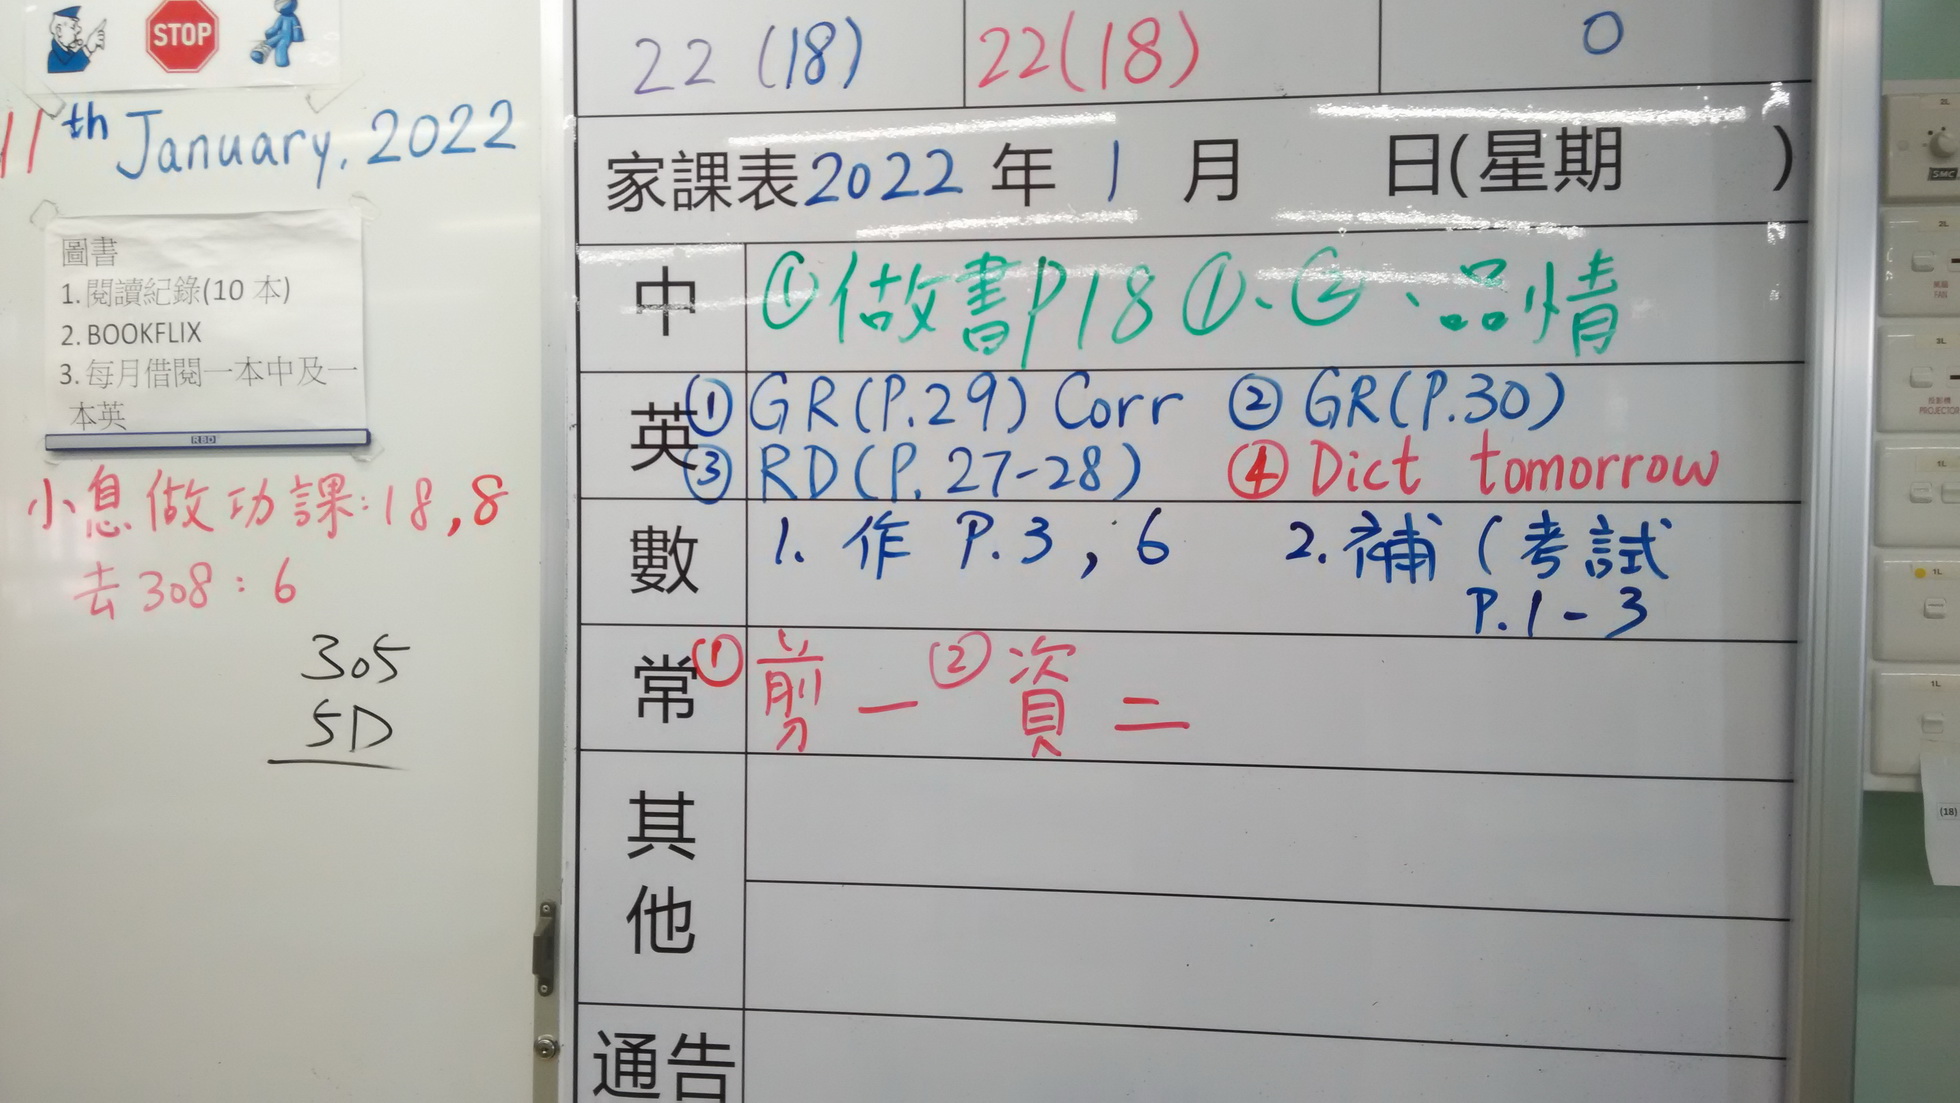 STOP
11th January, 2022
圖書
1. 閱讀紀錄(10 本)
2. BOOKFLIX
3. 每月借閱一本中及一
本英
RBD
小息做功課:18,8
去308:6
305
5D
22 (18) 22(18) 0
家課表2022年1月 日(星期 )
中 ①做書P18①、②、品情
英 ①GR(P.29) Corr ②GR(P.30)
③RD(P.27-28) ④Dict tomorrow
數 1. 作 P.3, 6 2. 補 (考試
P.1-3
常 ①剪一 ②資二
其
他
通告
2L
SMC
2L
風扇
FAN
3L
投影機
PROJECTOR
1L
1L
1L
(18)